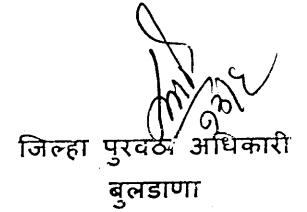 जिल्हा पुरवठा अधिकारी
बुलडाणा